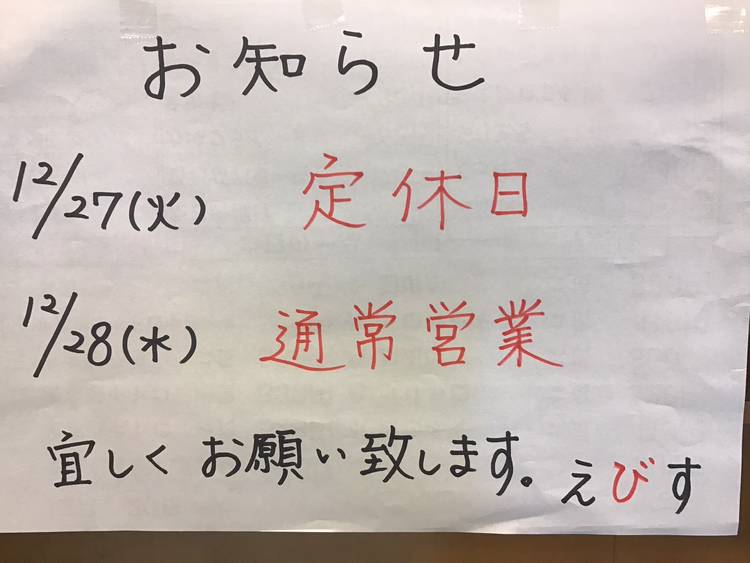 お知らせ
12/27(火) 定休日
12/28(水) 通常営業
宜しくお願い致します。えびす